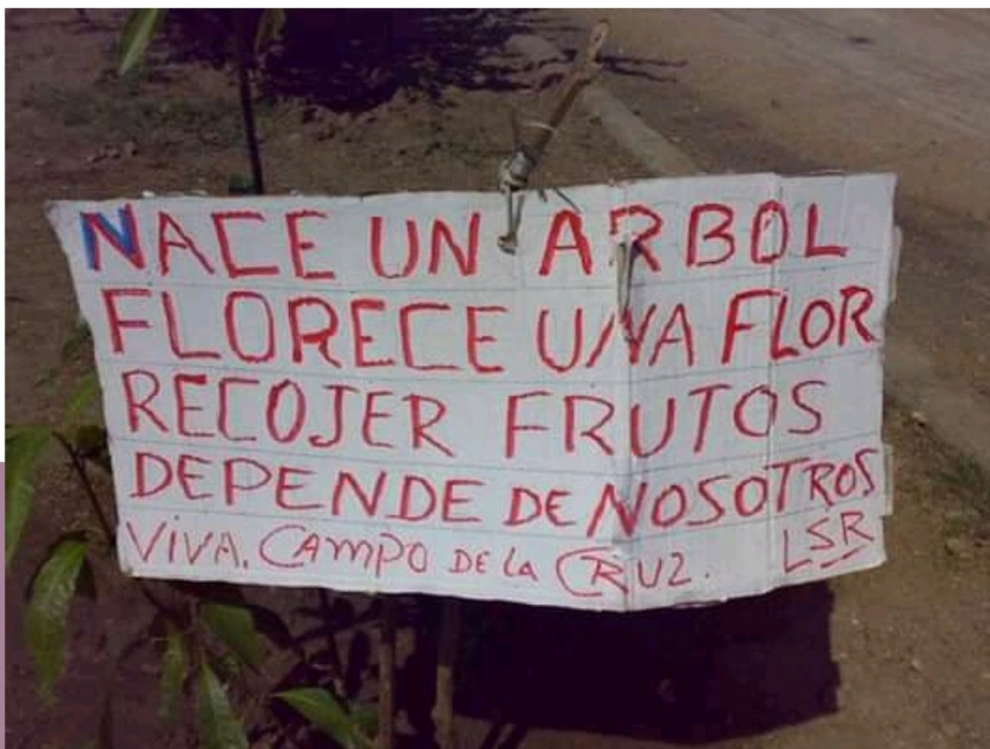 NACE UN ARBOL
FLORECE UNA FLOR
RECOJER FRUTOS
DEPENDE DE NOSOTROS
VIVA. CAMPO DE LA CRUZ. LSR